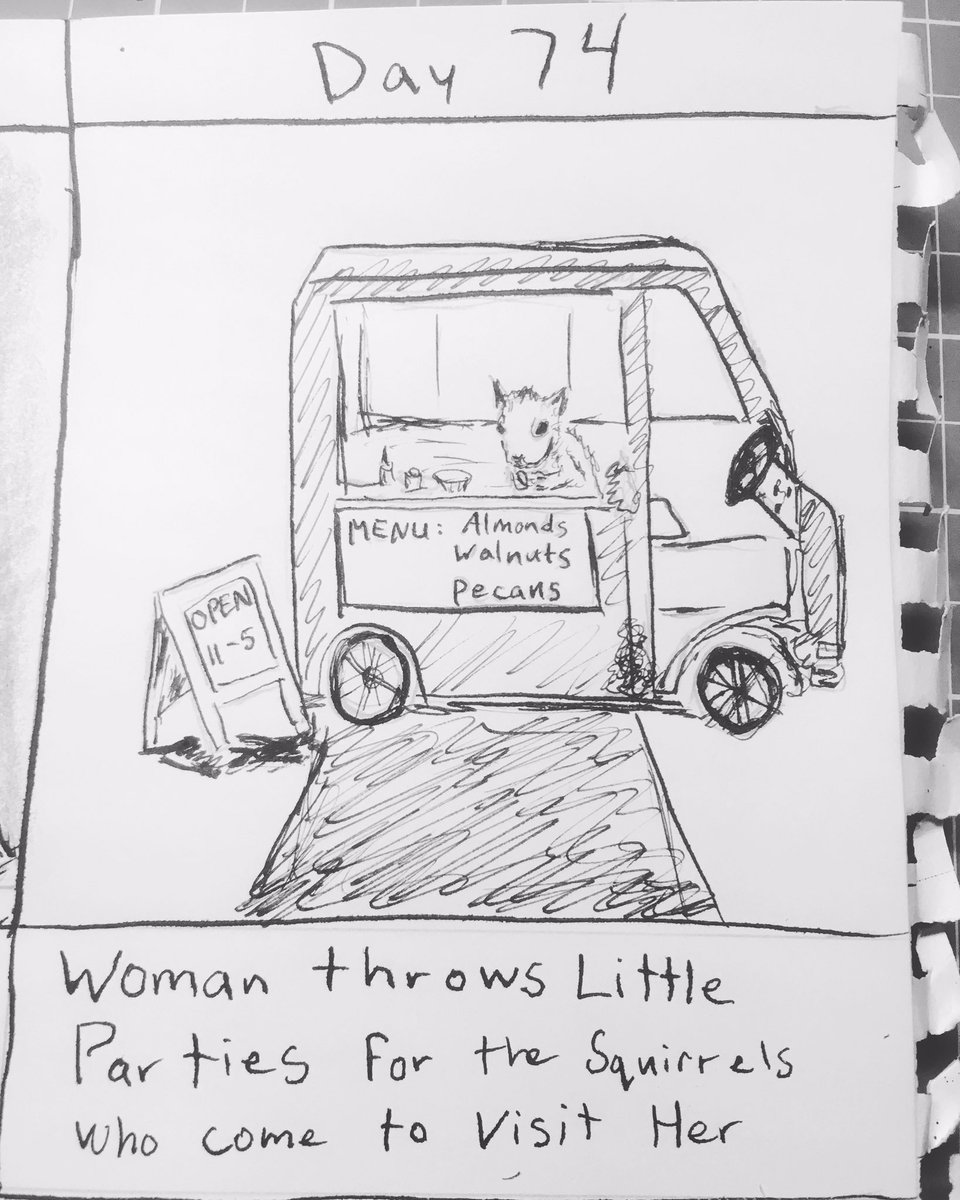 Day 74
MENU: Almonds
Walnuts
Pecans
OPEN
11-5
Woman throws Little
Parties For the Squirrels
who come to Visit Her